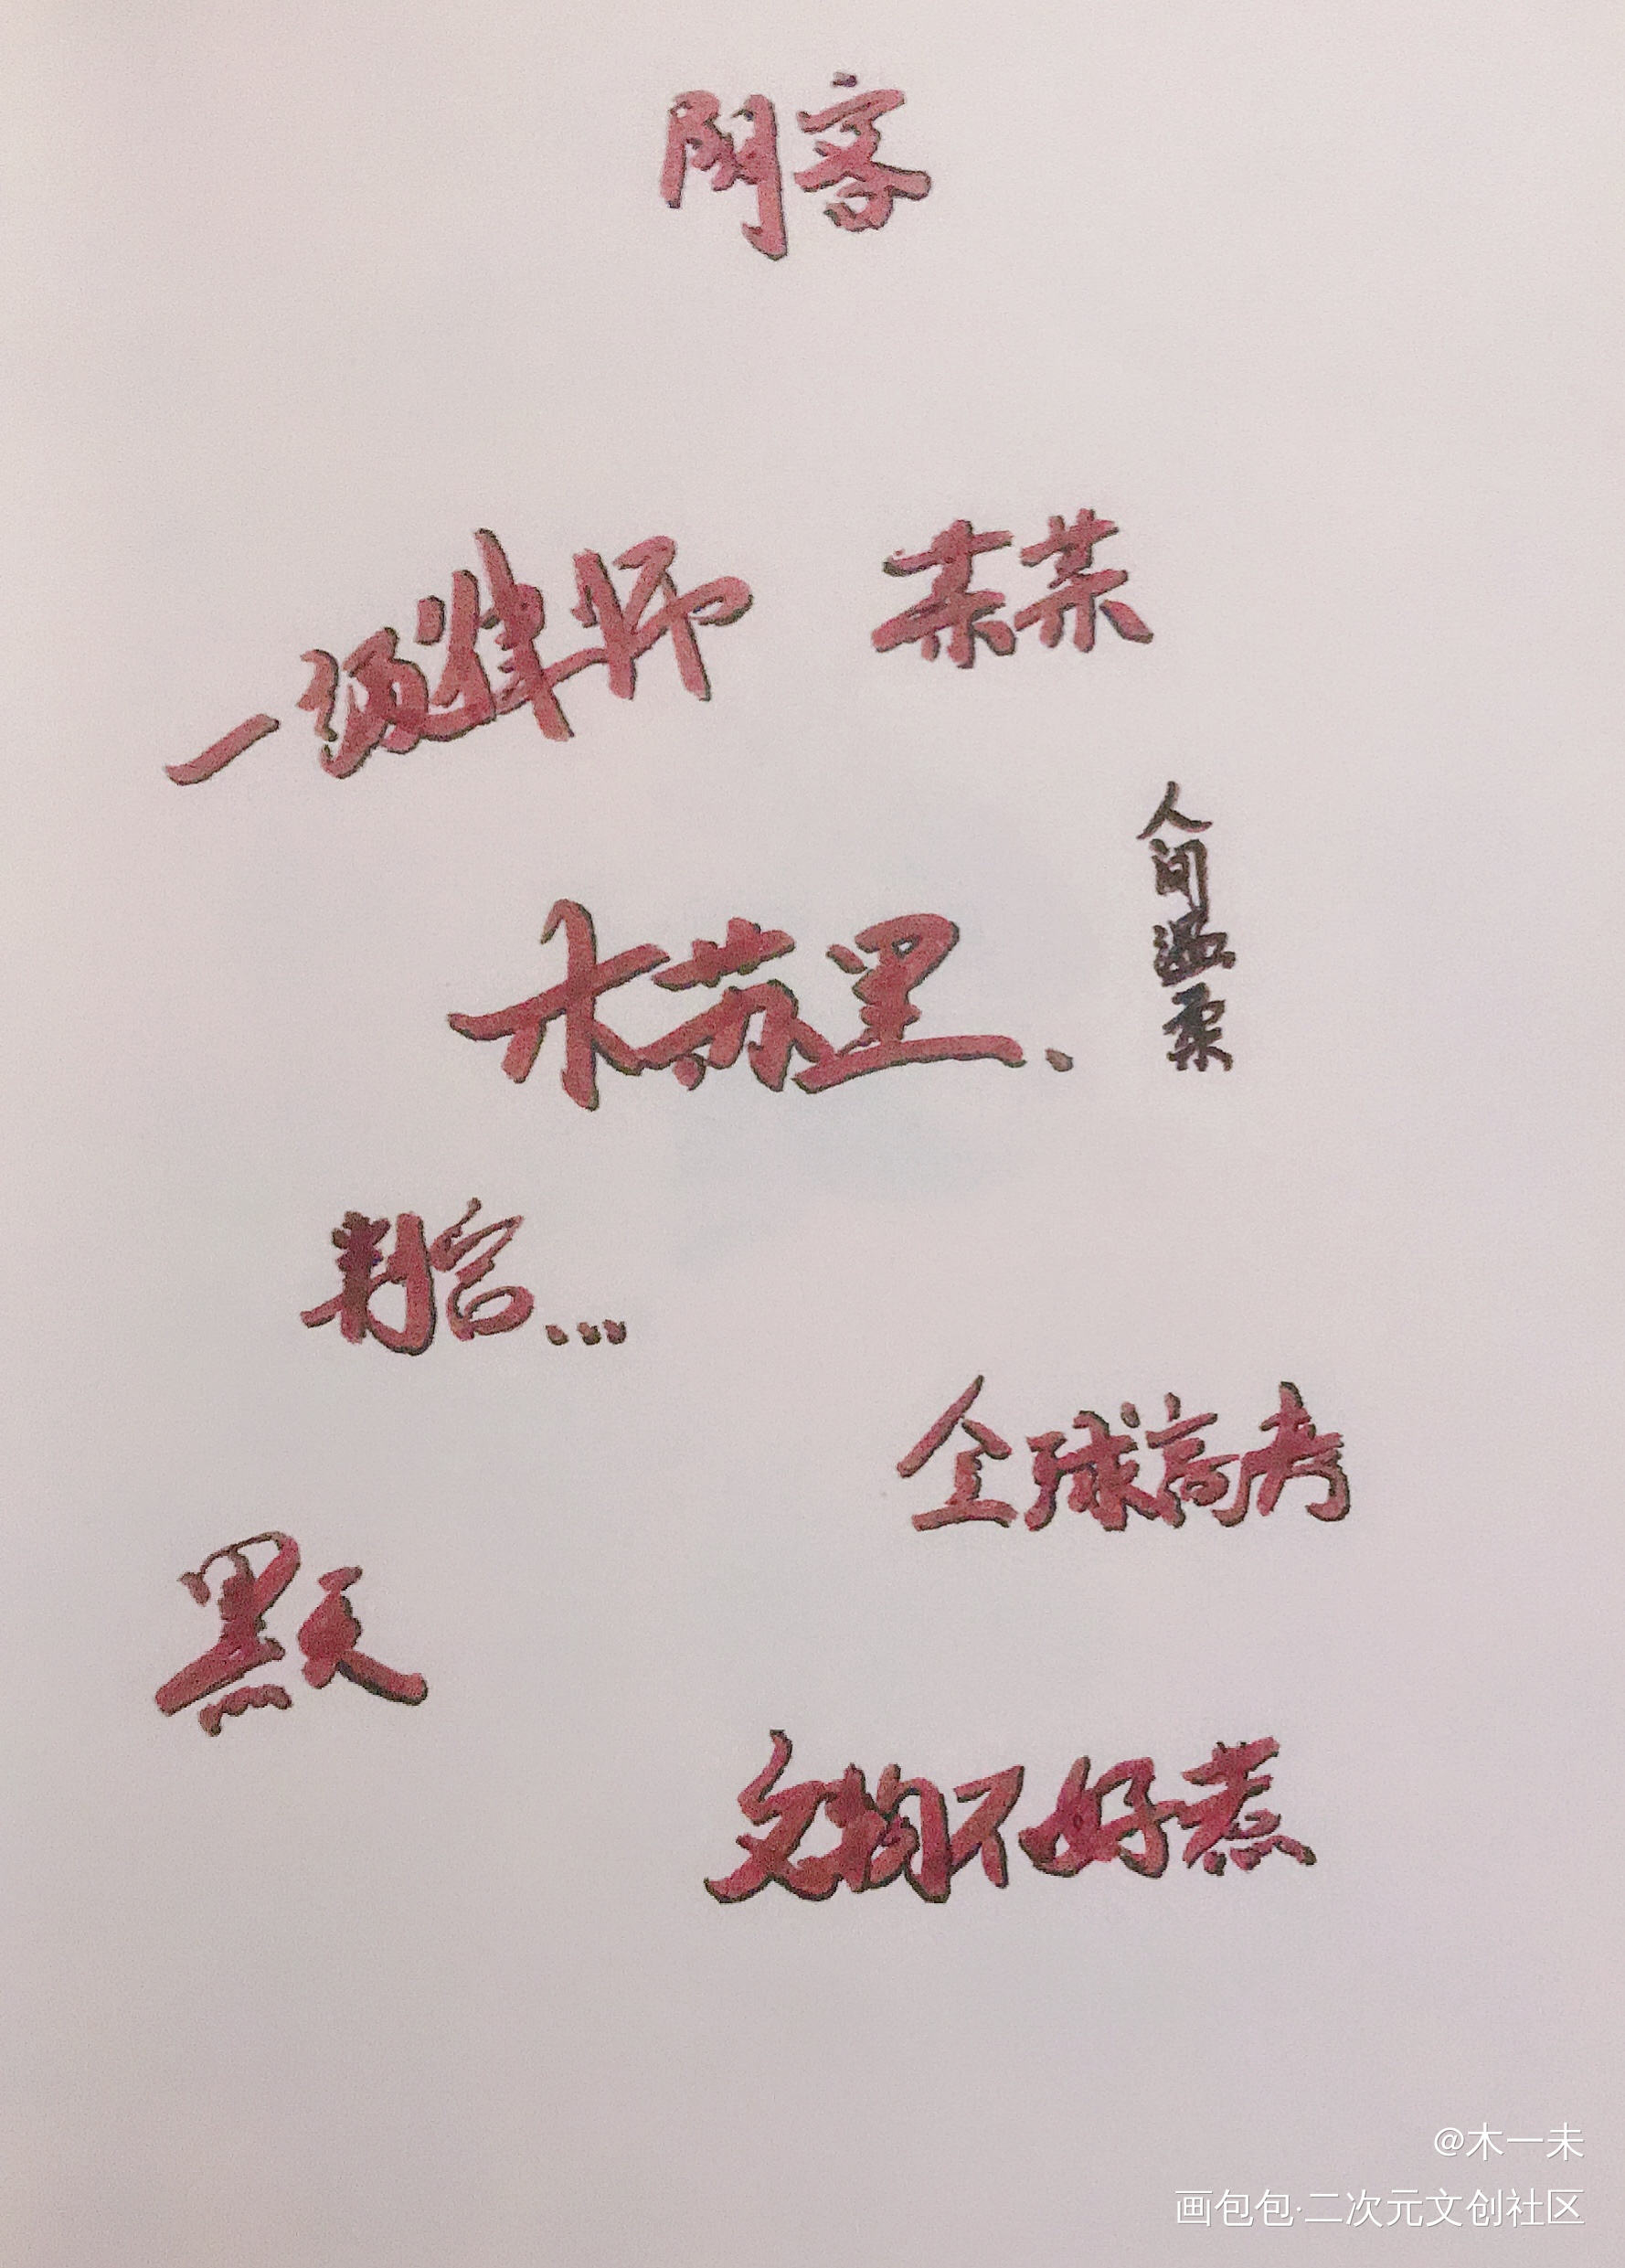 客
一级律师 某某
木苏里、
人间温柔
判官...
全球高考
黑天
文物不好惹
@木一未
画包包·二次元文创社区